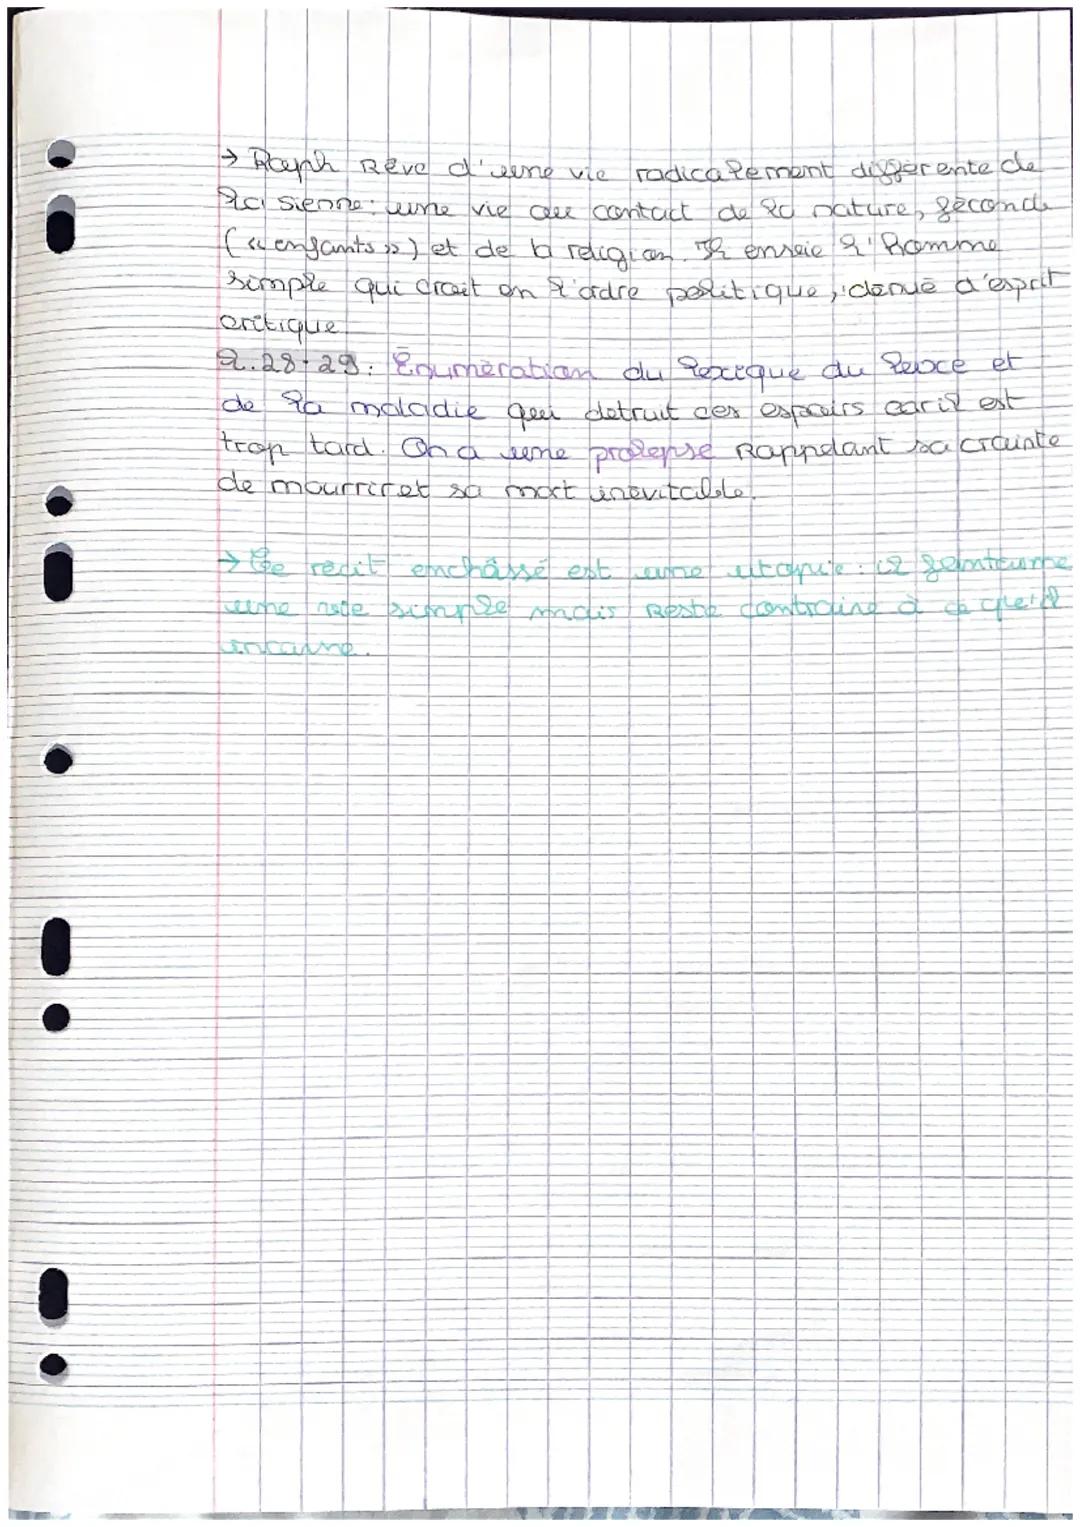 → Raph Rêve d'une vie radicalement différente de
la sienne: une vie au contact de la nature, féconde
(«enfants») et de la religion. Il envie l'homme
simple qui croit en l'ordre politique, denué d'esprit
critique
l.28-29: Énumération du lexique du luxe et
de la maladie qui detruit ces espoirs car il est
trop tard. On a une prolepse Rappelant sa crainte
de mourrir et sa mort inévitable.
→ Ce récit enchâssé est une utopie: il
une vie simple mais Reste contraire à ce qu'il
incarne.